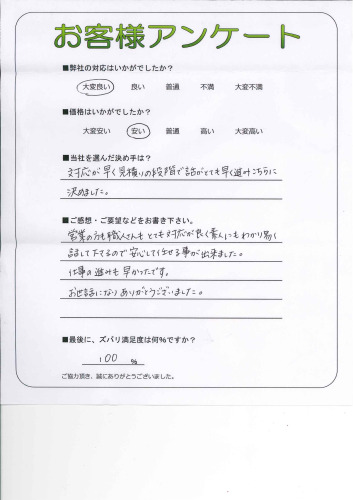 お客様アンケート
■弊社の対応はいかがでしたか？
大変良い 良い 普通 不満 大変不満
■価格はいかがでしたか？
大変安い 安い 普通 高い 大変高い
■当社を選んだ決め手は？
対応が早く見積りの段階で話がとても早く進みこちらに
決めました。
■ご感想・ご要望などをお書き下さい。
営業の方も職人さんもとても対応が良く素人にもわかり易く
話して下さるので安心して任せる事が出来ました。
仕事の進みも早かったです。
お世話になりありがとうございました。
■最後に、ズバリ満足度は何％ですか？
100 ％
ご協力頂き、誠にありがとうございました。